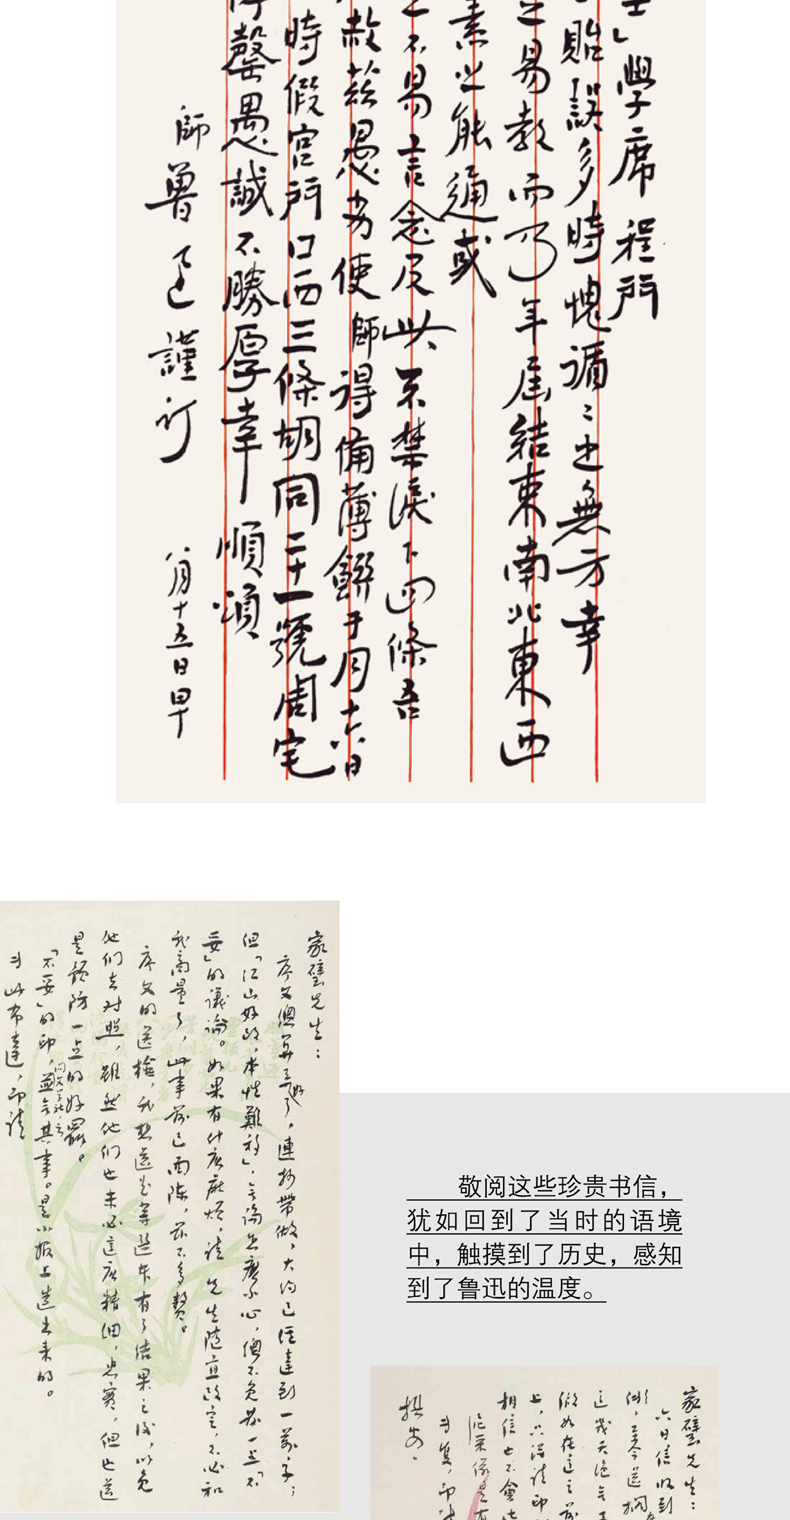 」學席 程門
貽誤多時愧循〻之無方幸
之易教而乃年届結束南北東西
素之能通或
不易言念及此不禁淚下四條吾
赦茲愚劣使師得備薄饌于月十六日
時假宫門口西三條胡同二十一號周宅
罄愚誠不勝厚幸順頌
師魯迅謹訂 八月十五日早
家璧先生：
序文總算弄好了，連抄帶做，大約已經達到一萬字；
但「江山好改，本性難移」，無論怎麽小心，總不免發一點「不
妥」的議論。如果有什麽麻煩，請 先生隨宜改定，不必和
我商量了，此事前已面陳，兹不多贅。
序文的送檢，我想還是等選本有了結果之後，以免
他們去對照，雖然他們也未必這麽精細，忠實，但也還
是預防一點的好罷。
「不妥」的印，問文學社，云並無其事。是小報上造出來的。
專此布達，即請
敬阅这些珍贵书信，
犹如回到了当时的语境
中，触摸到了历史，感知
到了鲁迅的温度。
家璧先生：
六日信收到
撰安。